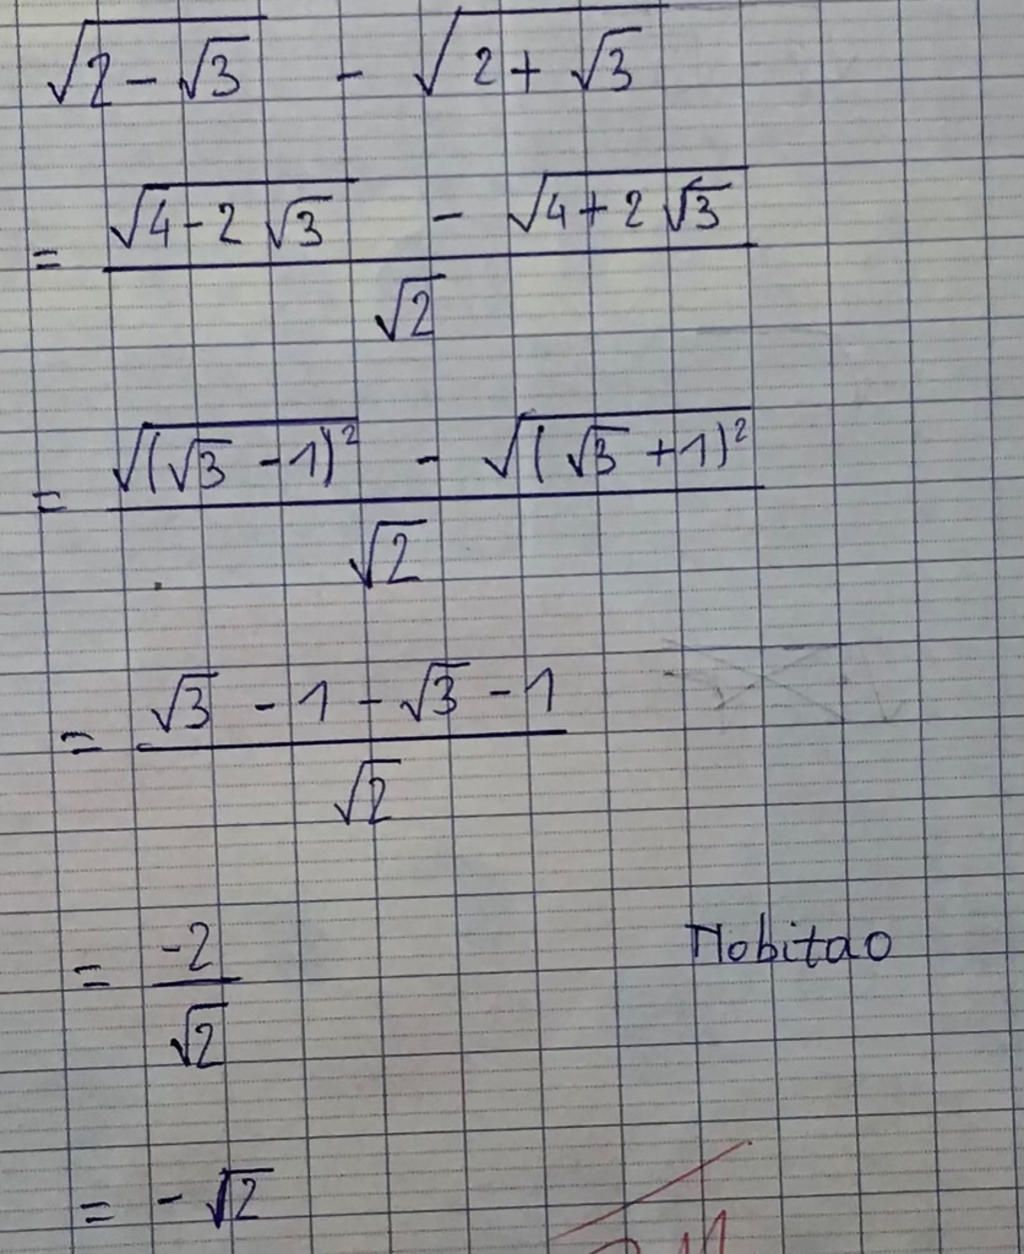 √(2 - √3) - √(2 + √3)
= (√(4 - 2√3) - √(4 + 2√3)) / √2
= (√((√3 - 1)²) - √((√3 + 1)²)) / √2
= (√3 - 1 - √3 - 1) / √2
= -2 / √2
Nobitao
= -√2